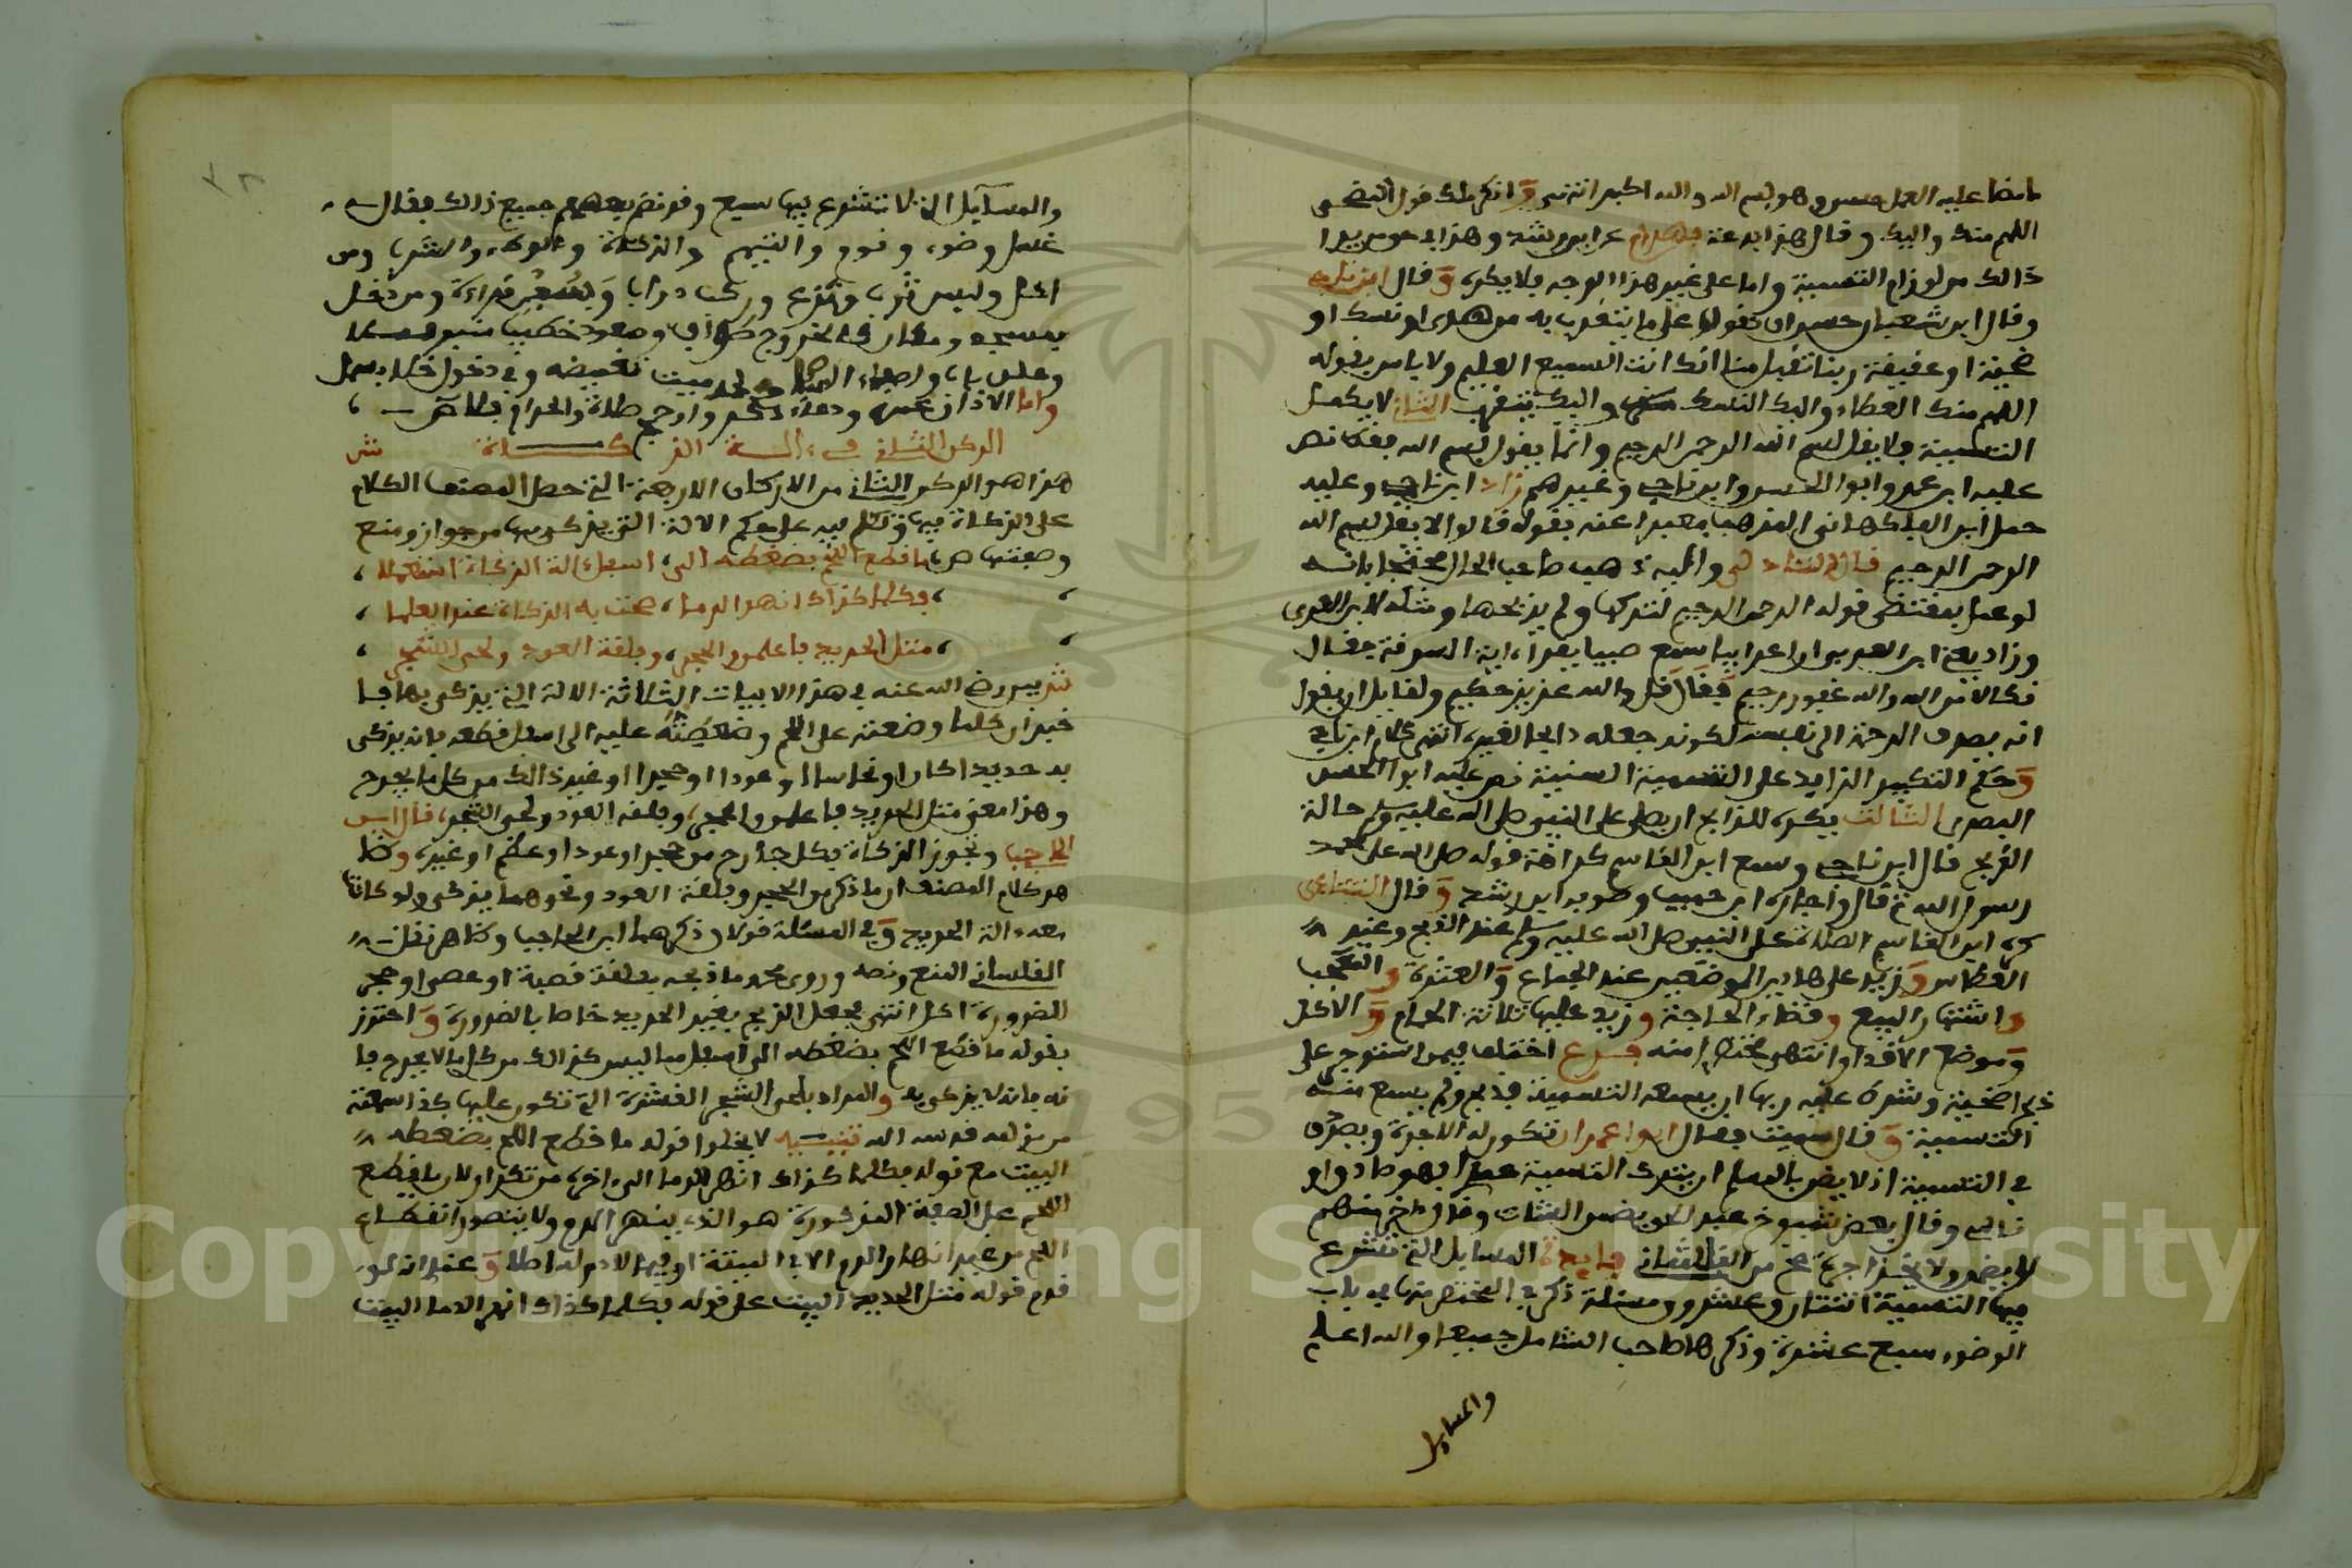 ما مضا عليه العمل حسن وهو بسم الله والله اكبر انتهى وانكر ملك قول المضحي
اللهم منك واليك وقال هذا بدعة ابن رشد وهذا
ذالك من لوازم التسمية واما على غير هذا الوجه فلا يكره وقال ابن ناجي
وقال ابن شعبان حسن ان تقولها على ما يتقرب به من هدى او نسك او
ضحية او عقيقة ربنا تقبل منا انك انت السميع العليم ولا باس بقوله
اللهم منك العطاء واليك النسك واليك يتقرب الثاني لا يكمل
التسمية فلا يقل بسم الله الرحمن الرحيم وانما يقول بسم الله فقط نص
عليه ابن عمر وابوا الحسن وابن ناجي وغيرهم زاد ابن ناجي وعليه
حمل ابن الفاكهاني المذهب معبرا عنه بقوله قالوا لا يقل بسم الله
الرحمن الرحيم قال واليه ذهب صاحب الحلل محتجا بانه
لو عمل بمقتضى قوله الرحمن الرحيم لتركها ولم يذبحها ومثله لابن العربى
وزاد يعنى ابن العربى ان اعرابيا سمع صبيا يقرا اية السرقة فقال
نكالا من الله والله غفور رحيم فقال قل والله عزيز حكيم ولقايل ان يقول
انه يصرف الرحمة الى نفسه لكونه جعله ذابحا لغيره انتهى كلام ابن ناجي
وحكم التكبير الزايد على التسمية السنية نص عليه ابوا الحسن
البصرى الثالث يكره للذابح ان يصلى على النبى صلى الله عليه وسلم حالة
الذبح قال ابن ناجي وسمع ابن القاسم كراهة قوله صلى الله على محمد
رسول الله ثم قال واجازه ابن حبيب وصوبه ابن رشد وقال التتائى
كره ابن القاسم الصلاة على النبى صلى الله عليه وسلم عند الذبح وعند
العطاس وزيد على هذين الموضعين عند الجماع والعثرة والتعجب
واشتهار البيع وقضاء الحاجة وزيد عليها ثلاثة الحمام والاكل
وموضع الاقذار انتهى مختصرا منه فرع اختلف فيمن استوجر على
ذبح اضحية وشرط عليه ربها ان يسمعه التسمية فذبح ولم يسمع منه
التسمية وقال سميت فقال ابوا عمران تكون له الاجرة وبصرف
في التسمية اذ لا يظن بالمسلم ان يترك التسمية عمدا
ناس وقال بعض شيوخ عبد الحق يضمن الشات وقال اخر منهم
لا يضمن ولا ياخذ اجرة فايدة المسايل التي تشرع
فيها التسمية اثنتان وعشرون مسئلة ذكر في المختصر منها في باب
الوضوء سبع عشرة وذكرها صاحب الشامل جميعا والله اعلم
والمسايل
والمسايل التي لا تشرع فيها سبع وقد نظم بعضهم جميع ذالك فقال
غسل وضوء ونوم والتيمم والذكاة والوطء والشرب ومن
اكل ولبس ثوب ونزع وركب دواب وبعض قراءة ومن دخل
بمسجد ودار والخروج طواف وصعود خطيب منبر
وغلق باب واطفاء ولحد ميت تغميضه وفي دخول خلاء بسمل
واما الاذان ودعاء ذكر وارح صلاة والحرام
الركن الثانى فى الة الذكاة ش
هذا هو الركن الثانى من الاركان الاربعة التي حصل المصنف الكلام
على الذكاة فيها وتكلم فيه على حكم الالة التي يذكى بها من جواز ومنع
وصفتها هى ما قطع اللحم بضغطه الى اسفل الة الذكاة انتقلا
فكلما كذاك انهر الدما صحت به الذكاة عند العلما
مثل الحديد فاعلمن والحجر وفلقة العود ولحى الشجر
ش بين رضى الله عنه في هذه الابيات الثلاثة الالة التي يذكى بها
خبر ان كلما وضعته على اللحم وضغطته عليه الى اسفل قطعه فانه يذكى
به حديدا كان او نحاسا او عودا او حجرا او غير ذالك من كل ما يجرح
وهذا معنى مثل الحديد فاعلمن والحجر وفلقة العود ولحى الشجر قال ابن
الحاجب وتجوز الذكاة بكل جارح من حجر او عود او عظم او غيره وظا
هر كلام المصنف ان ما ذكر من الحجر وفلقة العود ونحوهما يذكى ولو كانت
معه الة الحديد وفي المسئلة قولان ذكرهما ابن الحاجب وظاهر نقل
القلسانى المنع ونصه وروى محمد ما ذبحه بفلقة قصبة او عصى او حجر
للضرورة اكل انتهى فجعل الذبح بغير الحديد خاصا بالضرورة واحترز
بقوله ما قطع اللحم بضغطه الى اسفل مما ليس كذالك من كل ما لا يجرح فا
نه فانه لا يذكى به والمراد بلحى الشجر القشرة التي تكون عليها كذا سمعته
من قدسه الله تنبيه لا يخلوا قوله ما قطع اللحم بضغطه
البيت مع قوله فكلما كذاك انهر الدما الى اخره من تكرار لان ما يقطع
اللحم على الصفة المذكورة هو الذى ينهر الدم ولا يتصور انقطاع
اللحم من غير انهار الدم الا في الميتة او فيما لا دم له اصلا و
قدم قوله مثل الحديد البيت على قوله فكلما كذاك انهر الدما البيت